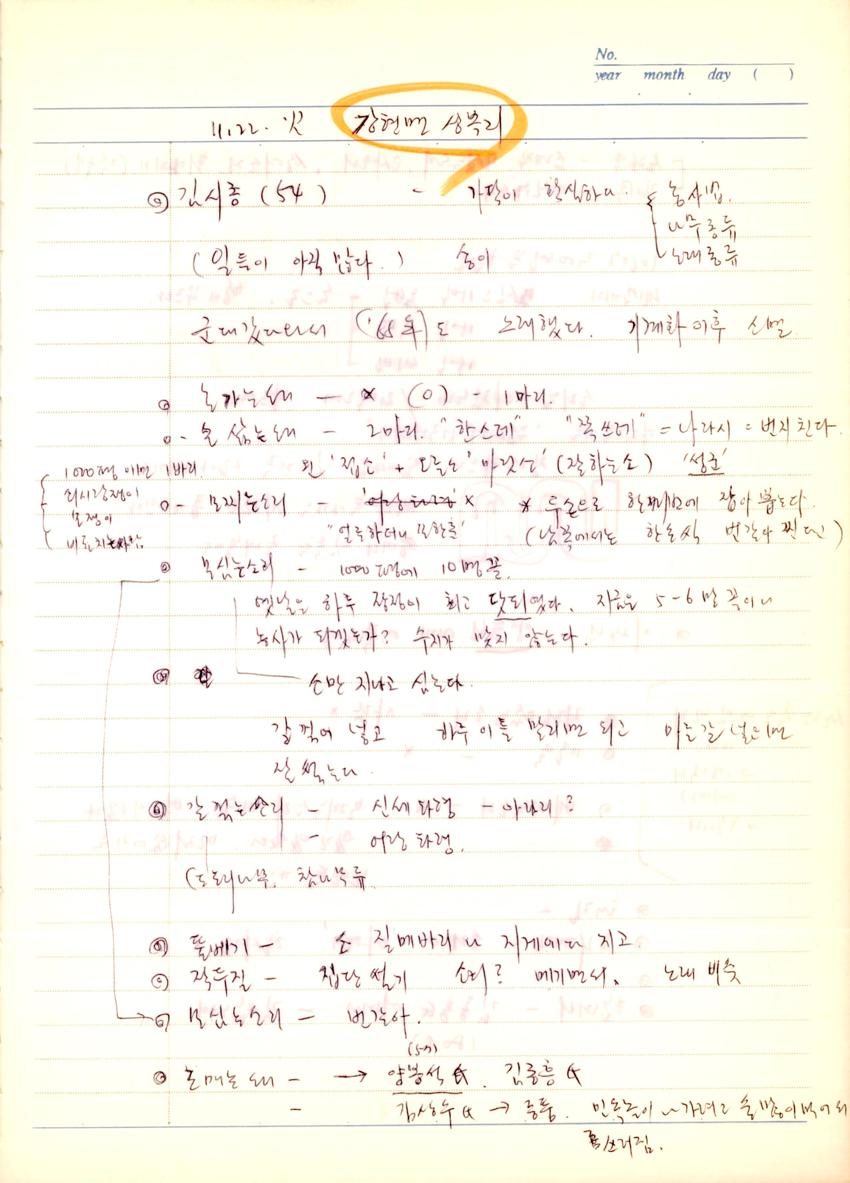 No.
year month day ( )
11.22. 강현면 상복리
김시종 (54) - 가락이 학실하다. 농사법.
나무종류
(일들이 아직 많다.) 송이 노래종류
군대갔다와서 ('65年)도 노래했다. 기계화 이후 소멸
논가는소리 - × (0) - 1마리.
논 삶는소리 - 2마리. "한스레" "쪽쓰레" = 나라시 = 번지친다.
1000평 이면 1바리. 왼 '접소' + 오른소 '마랏소' (잘하는소)
모쟁이 모찌는소리 - '어랑타령' × × 두손으로 한꺼번에 잡아 뽑는다.
"얼른하더니 또한춤" (남쪽에서는 한손씩 번갈아 찐다)
모심는소리 - 1000평에 10명꼴.
옛날은 하루 장정이 최고 닷되였다. 지금은 5-6말 꼭이니
농사가 되겠는가? 수지가 맞지 않는다.
소만 지나고 심는다.
갈 꺾어 넣고 하루 이틀 말리면 되고 마른갈 넣으면
잘 썩는다.
갈 꺾는소리 - 신세타령 - 아라리?
- 어랑타령.
(도토리나무. 참나무류
뚤베기 - 소 질메바리나 지게에다 지고
작두질 - 짚단 썰기 소리? 메기면서. 노래 비슷
모심는소리 = 번갈아.
논매는소리 - → 양봉석 김종흥
- 김상수 → 중풍. 민속놀이 나가려고
쓰러짐.